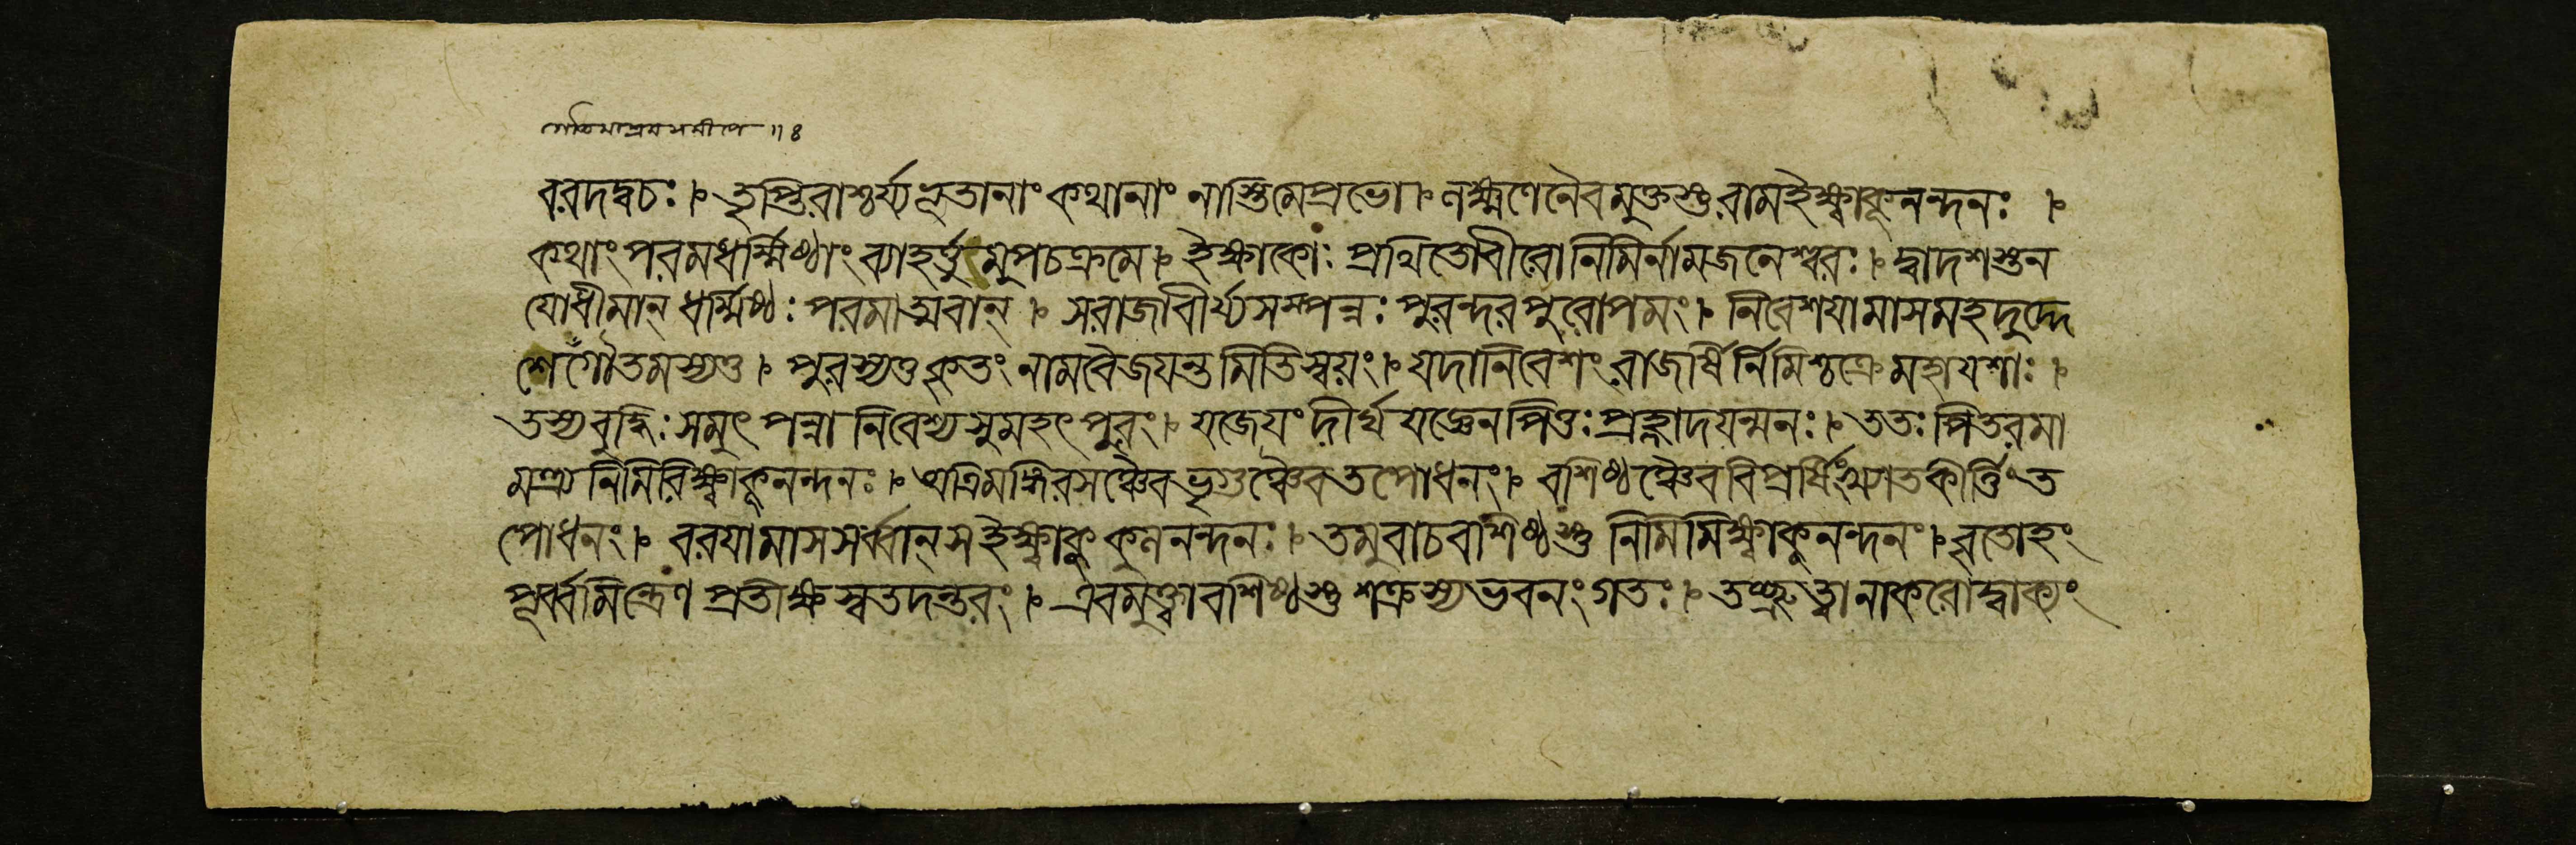 গৌতমাশ্রমসমীপে ॥ ৪
বরদদ্বচঃ। তৃপ্তিরাশ্চর্য্যভূতানাং কথানাং নাস্তিমেপ্রভো। লক্ষ্মণেনৈবমুক্তস্তু রামইক্ষ্বাকুনন্দনঃ ।
কথাং পরমধর্ম্মিষ্ঠাং ব্যাহর্ত্তুমুপচক্রমে। ইক্ষ্বাকোঃ প্রথিতোবীরোনিমির্নামজনেশ্বরঃ। দ্বাদশস্তুন
যোধীমান্ ধর্ম্মিষ্ঠঃ পরমাত্মবান্ । সরাজাবীর্য্যসম্পন্নঃ পুরন্দরপুরোপমং। নিবেশযামাসমহদুদ্দে
শেগৌতমস্যতু। পুরস্যতুকৃতং নামবৈজযন্তমিতিস্বয়ং। যদানিবেশং রাজর্ষির্নিমিশ্চক্রেমহাযশাঃ।
তস্যবুদ্ধিঃ সমুৎপন্না নিবেশ্যসুমহৎ পুরং। যজেযং দীর্ঘযজ্ঞেনপিতুঃ প্রহ্লাদযন্মনঃ। ততঃ পিতরমা
মন্ত্র্যনিমিরিক্ষ্বাকুনন্দনঃ। অত্রিমঙ্গিরসঞ্চৈবভৃগুঞ্চৈবতপোধনং। বশিষ্ঠঞ্চৈববিপ্রর্ষিং খ্যাতকীর্ত্তিংত
পোধনং। বরযামাসসর্ব্বান্ সইক্ষ্বাকুকুলনন্দনঃ। তমুবাচবশিষ্ঠস্তু নিমিমিক্ষ্বাকুনন্দনং। বৃতোহং
পূর্ব্বমিন্দ্রেণ প্রতীক্ষস্বতদন্তরং। এবমুক্ত্বাবশিষ্ঠস্তু শক্রস্যভবনং গতঃ। তচ্ছ্রুত্বানাকরোদ্বাক্যং